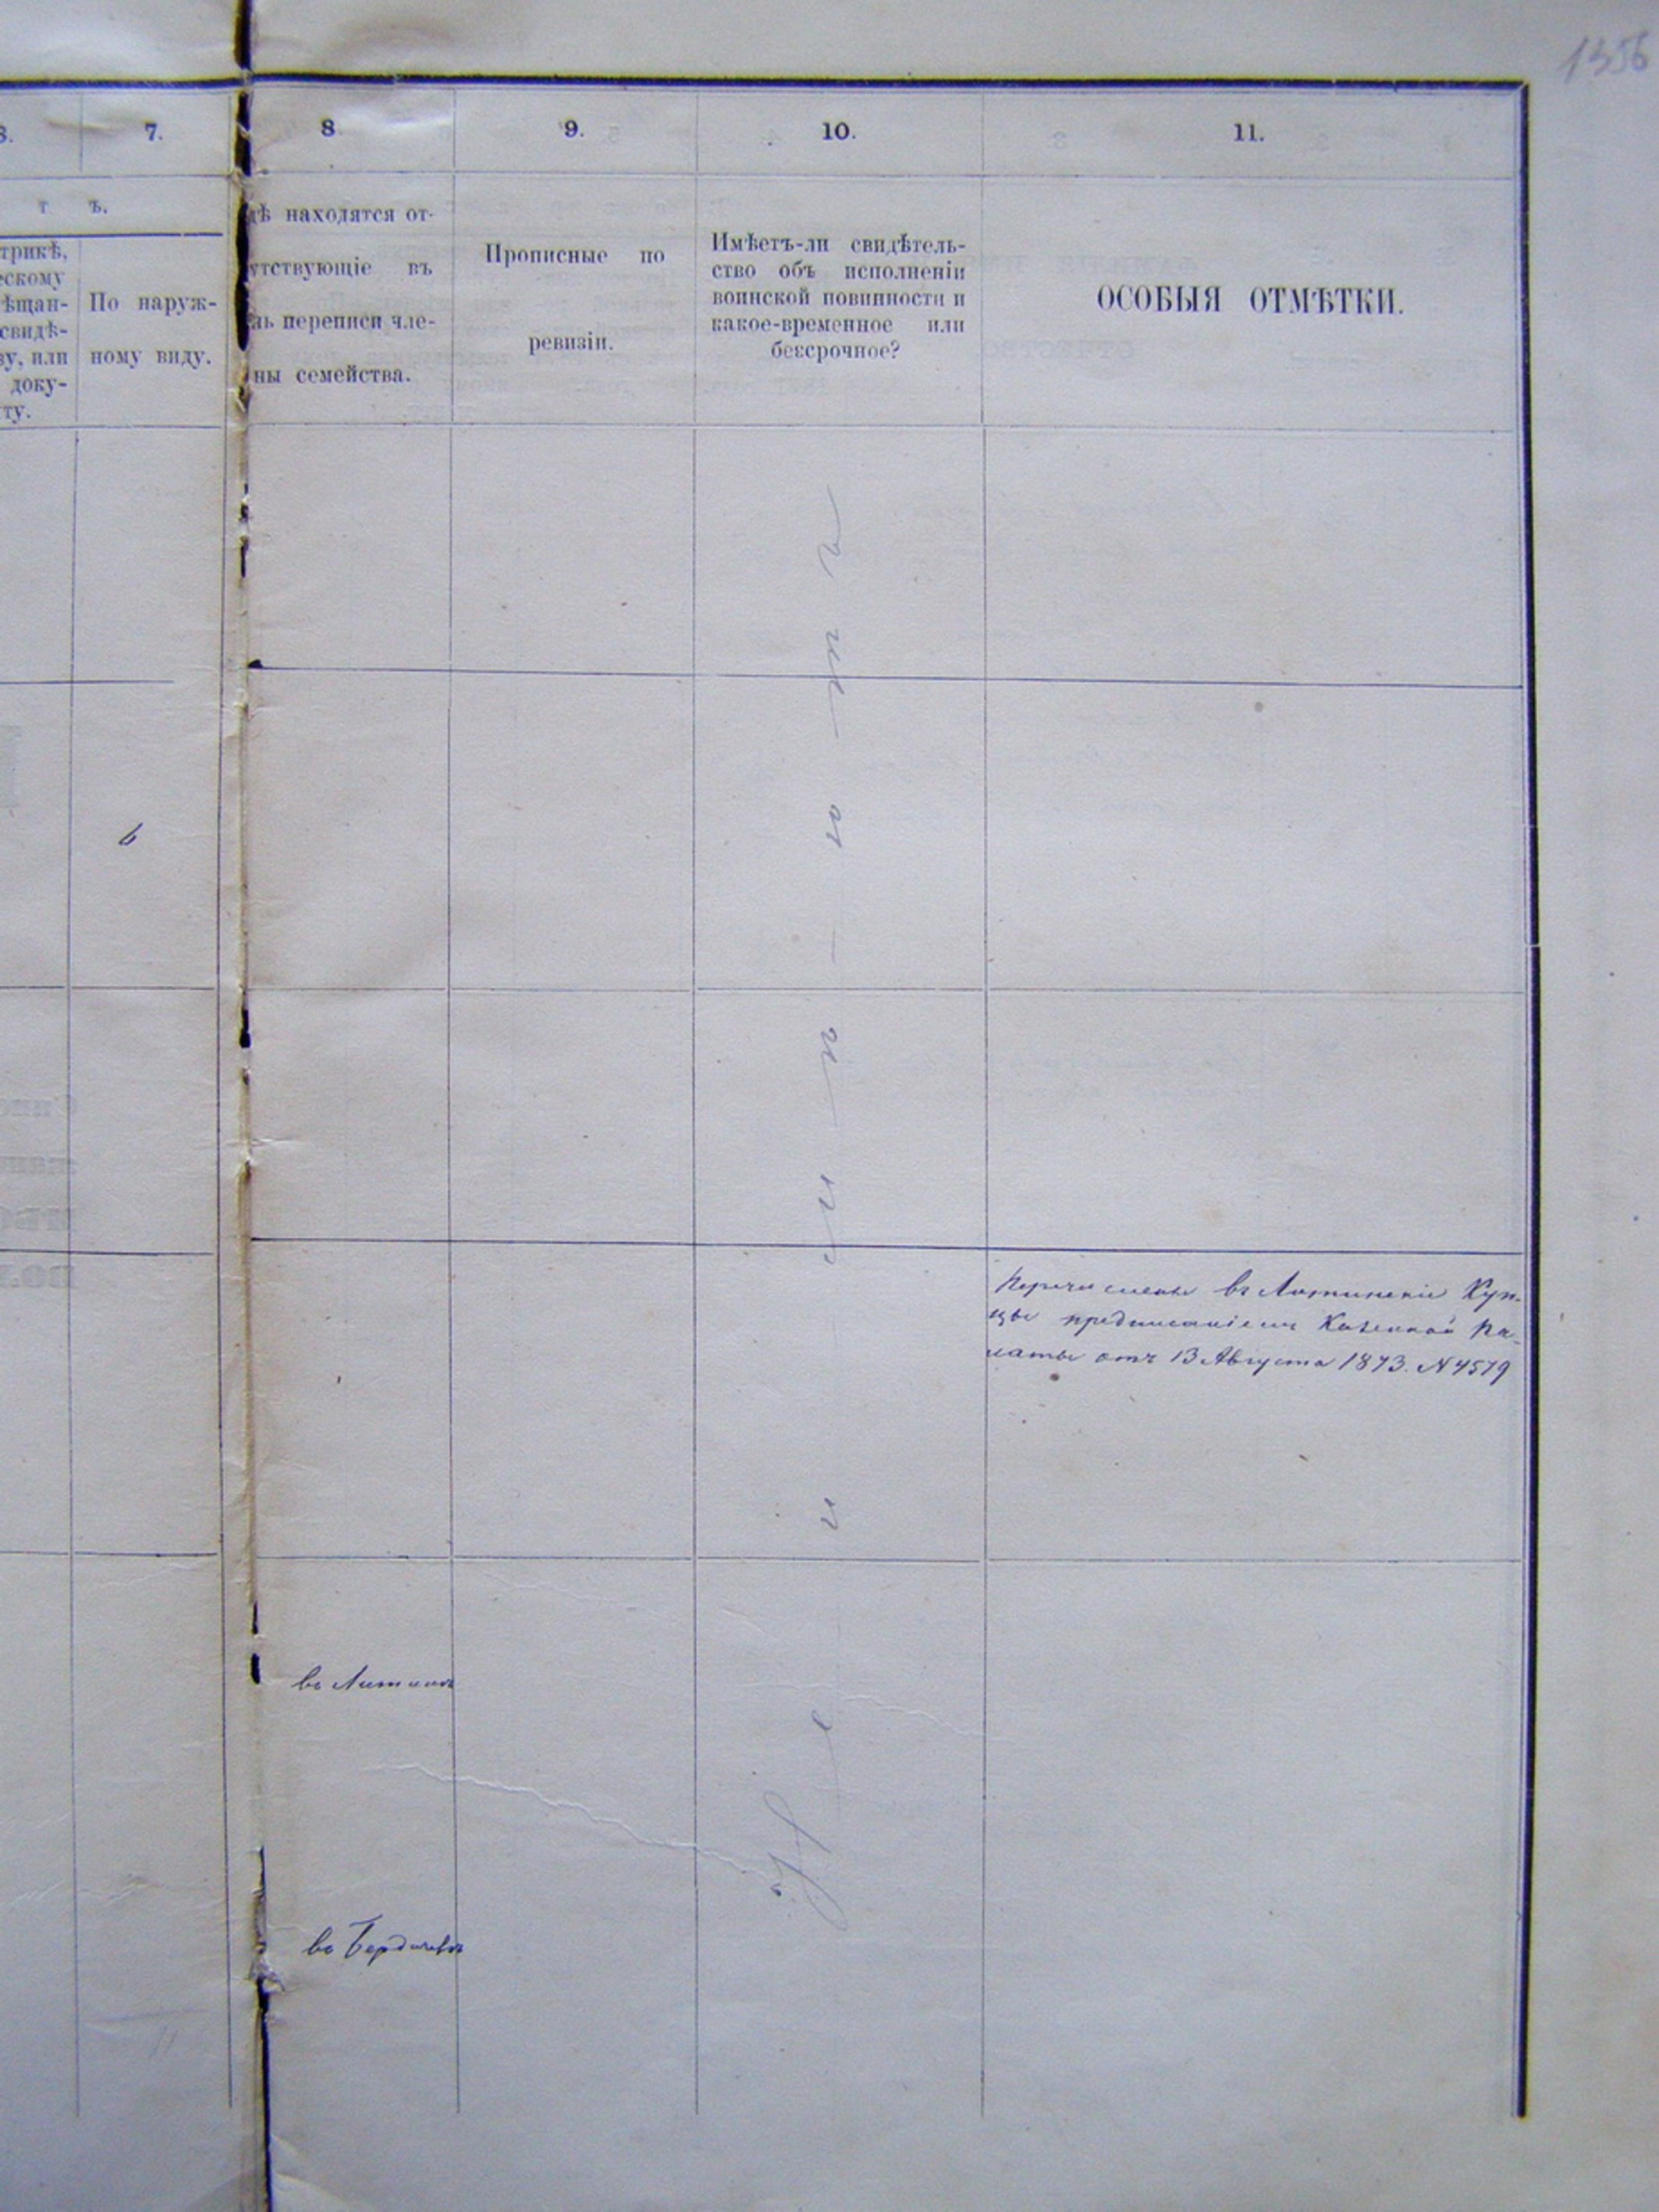 1356
7.
8
9.
10.
11.
т ъ.
трикѣ,
ескому
ѣщан-
свидѣ-
ву, или
доку-
ту.
По наруж-
ному виду.
дѣ находятся от-
утствующіе въ
нь переписи чле-
ны семейства.
Прописные по
ревизіи.
Имѣетъ-ли свидѣтель-
ство объ исполненіи
воинской повинности и
какое-временное или
безсрочное?
ОСОБЫЯ ОТМѢТКИ.
6
Перечислены въ Литинскіе Куп-
цы предписаніемъ Казенной Па-
латы отъ 13 Августа 1873. N 4579
въ Литинѣ
въ Бердичевѣ